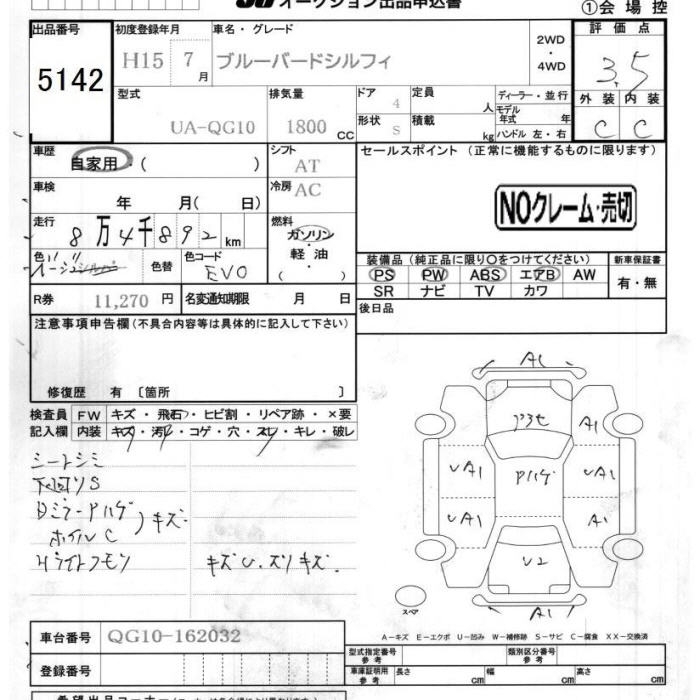 オークション出品申込書
①会場控
出品番号 5142
初度登録年月 H15 7月
車名・グレード ブルーバードシルフィ
2WD・4WD
評価点 3.5
型式 UA-QG10
排気量 1800 CC
ドア 4
形状 S
定員 人
積載 kg
ディーラー・並行
モデル年式 年
ハンドル 左・右
外装 内装
C C
車歴 自家用・( )
シフト AT
セールスポイント (正常に機能するものに限ります)
車検 年 月( 日)
冷房 AC
NOクレーム・売切
走行 8万4千892km
燃料 ガソリン・軽油・( )
色 ベージュ シルバー
色替
色コード EV0
装備品(純正品に限り○をつけてください)
新車保証書
PS PW ABS エアB AW
SR ナビ TV カワ
有・無
R券 11,270円
名変通知期限 月 日
後日品
注意事項申告欄(不具合内容等は具体的に記入して下さい)
修復歴 有 [箇所 ]
検査員記入欄
FW キズ・飛石・ヒビ割・リペア跡・×要
内装 キズ・汚レ・コゲ・穴・スレ・キレ・破レ
シートシミ
下回りS
Dミラー Pハゲ
ホイルC
)キズ
Hライトクモリ
キズU.スリキズ.
A1
アラセ
A1
UA1
Pハゲ
UA1
UA1
A1
U2
スペ
A1
A−キズ E−エクボ U−凹み W−補修跡 S−サビ C−腐食 XX−交換済
車台番号 QG10-162032
型式指定番号 参考
類別区分番号 参考
登録番号
車庫証明用 参考 長さ cm 幅 cm 高さ cm
希望出品コーナー